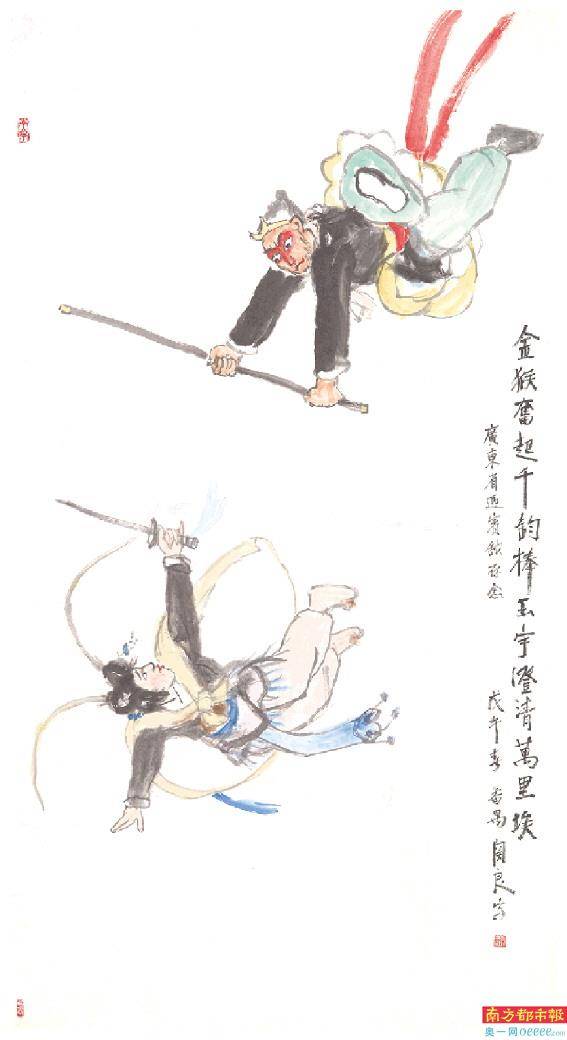 金猴奮起千鈞棒玉宇澄清萬里埃
廣東省迎賓館存念
戊午春 番禺 關良寫
南方都市報
奥一网oeeee.com